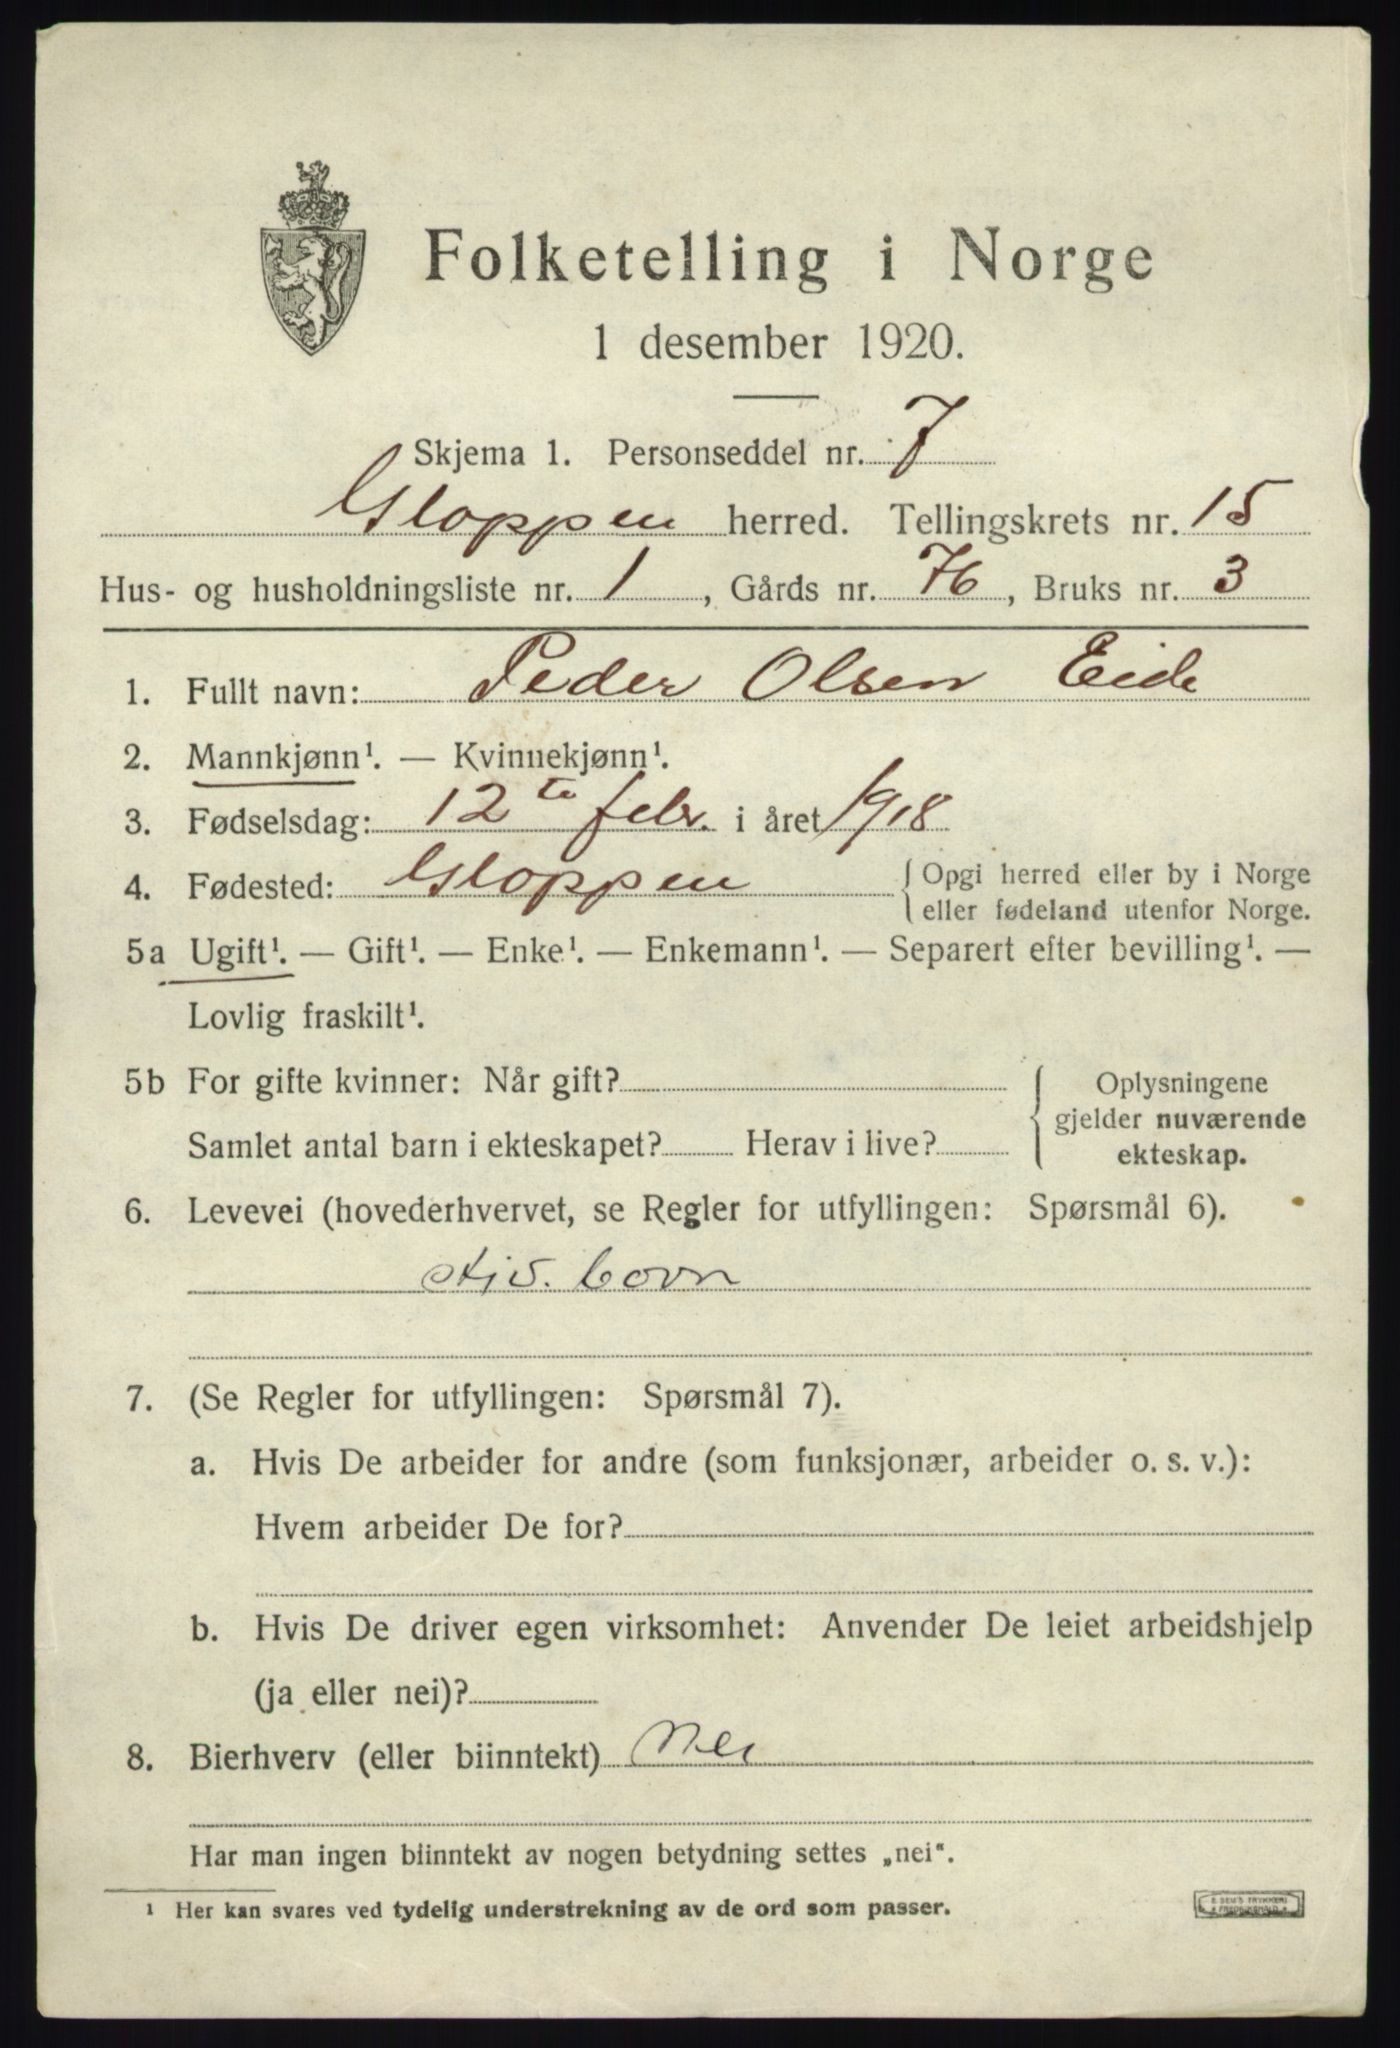 Folketelling i Norge
1 desember 1920.
Skjema 1. Personseddel nr. 7
Gloppen herred. Tellingskrets nr. 15
Hus- og husholdningsliste nr. 1, Gårds nr. 76, Bruks nr. 3
1. Fullt navn: Peder Olsen Eide
2. Mannkjønn¹. — Kvinnekjønn¹.
3. Fødselsdag: 12te febr. i året 1918
4. Fødested: Gloppen { Opgi herred eller by i Norge
eller fødeland utenfor Norge.
5a Ugift¹. — Gift¹. — Enke¹. — Enkemann¹. — Separert efter bevilling¹. —
Lovlig fraskilt¹.
5b For gifte kvinner: Når gift? { Oplysningene
gjelder nuværende
Samlet antal barn i ekteskapet? Herav i live?
ekteskap.
6. Levevei (hovederhvervet, se Regler for utfyllingen: Spørsmål 6).
7. (Se Regler for utfyllingen: Spørsmål 7).
a. Hvis De arbeider for andre (som funksjonær, arbeider o. s. v.):
Hvem arbeider De for?
b. Hvis De driver egen virksomhet: Anvender De leiet arbeidshjelp
(ja eller nei)?
8. Bierhverv (eller biinntekt) Nei
Har man ingen biinntekt av nogen betydning settes „nei“.
¹ Her kan svares ved tydelig understrekning av de ord som passer.